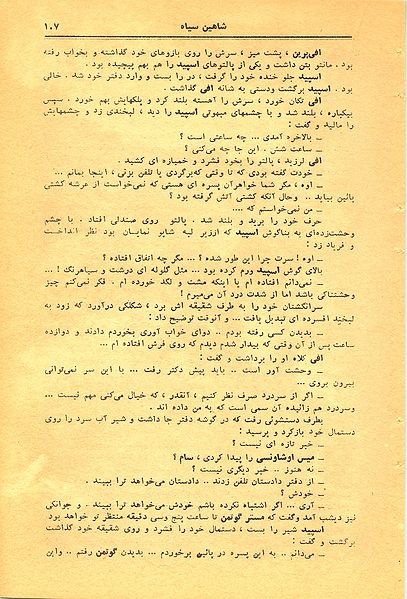 شاهین سیاه
۱۰۷
افی‌پرین ، پشت میز ، سرش را روی بازوهای خود گذاشته و بخواب رفته
بود . مانتو بتن داشت و یکی از پالتوهای اسپید را هم بهم پیچیده بود .
اسپید جلو خنده خود را گرفت ، در را بست و وارد دفتر خود شد . خالی
بود . اسپید برگشت ودستی به شانه افی گذاشت .
افی تکان خورد ، سرش را آهسته بلند کرد و پلکهایش بهم خورد . سپس
بیکباره ، بلند شد و با چشمهای مبهوتی اسپید را دید ، لبخندی زد و چشمهایش
را مالید و گفت :
ـ بالاخره آمدی ... چه ساعتی است ؟
ـ ساعت شش . این جا چه می‌کنی ؟
افی لرزید ، پالتو را بخود فشرد و خمیازه ای کشید .
ـ خودت گفته بودی که تا وقتی که‌برگردی یا تلفن بزنی ، اینجا بمانم ...
ـ اوه ، مگر شما خواهرآن پسره ای هستی که نمی‌خواست از عرشه کشتی
پائین بیاید .. وحال آنکه کشتی آتش گرفته بود ؟
ـ من نمی‌خواستم که ....
حرف خود را برید و بلند شد . پالتو روی صندلی افتاد . با چشم
وحشت‌زده‌ای به بناگوش اسپید که اززیر لبه شاپو نمایان بود نظر انداخت
و فریاد زد :
ـ اوه ! سرت چرا این طور شده ؟ ... مگر چه اتفاق افتاده ؟
بالای گوش اسپید ورم کرده بود ... مثل گلوله ای درشت و سیاهرنگ ! ...
ـ نمی‌دانم افتاده ام یا اینکه مشت و لگد خورده ام . فکر نمی‌کنم چیز
وحشتناکی باشد اما از شدت درد آن می‌میرم !
سرانگشتان خود را به طرف شقیقه اش برد ، شکلکی درآورد که زود به
لبخند افسرده ای تبدیل یافت ... و آنوقت توضیح داد :
ـ بدیدن کسی رفته بودم .. دوای خواب آوری بخوردم دادند و دوازده
ساعت پس از آن وقتی که بیدار شدم دیدم که روی فرش افتاده ام ...
افی کلاه او را برداشت و گفت :
ـ وحشت آور است .. باید پیش دکتر رفت ... با این سر نمی‌توانی
بیرون بروی ...
ـ اگر از سردرد صرف نظر کنیم ، آنقدر ، که خیال می‌کنی مهم نیست ...
وسردرد هم زائیده آن سمی است که به من داده اند .
بطرف دستشوئی رفت که در گوشه دفتر جا داشت و شیر آب سرد را روی
دستمال خود بازکرد و پرسید :
ـ خبر تازه ای نیست ؟
ـ میس اوشاونسی را پیدا کردی ، سام ؟
ـ نه هنوز .. خبر دیگری نیست ؟
ـ از دفتر دادستان تلفن زدند .. دادستان می‌خواهد ترا ببیند .
ـ خودش ؟
ـ آری ... اگر اشتباه نکرده باشم خودش می‌خواهد ترا ببیند . و جوانکی
نیز دیشب آمد وگفت که مستر گوتمن تا ساعت پنج وسی دقیقه منتظر تو خواهد بود
اسپید شیر را بست ، دستمال خود را فشرد و روی شقیقه خود گذاشت
برگشت و گفت :
ـ می‌دانم .. به این پسره در پائین برخوردم ... بدیدن گوتمن رفتم .. واین